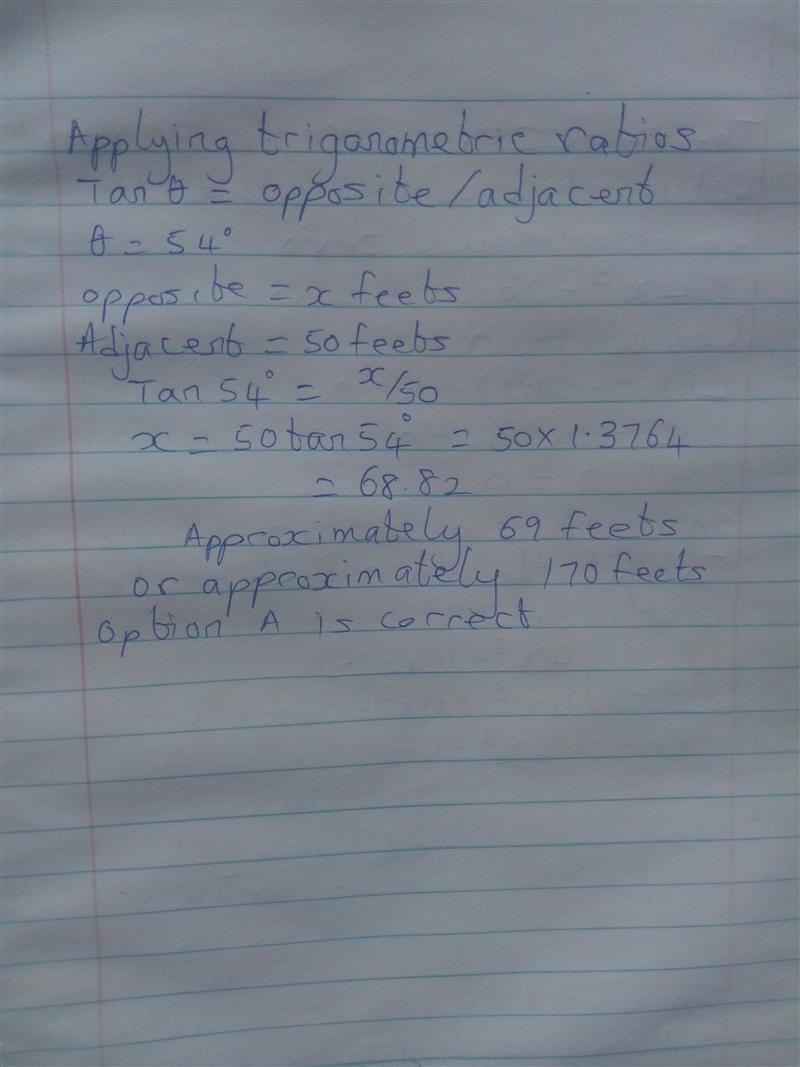 Applying triganometric ratios
Tan θ = opposite/adjacent
θ = 54°
opposite = x feets
Adjacent = 50 feets
Tan 54° = x/50
x = 50 tan 54° = 50 x 1.3764
= 68.82
Approximately 69 feets
or approximately 170 feets
Option A is correct